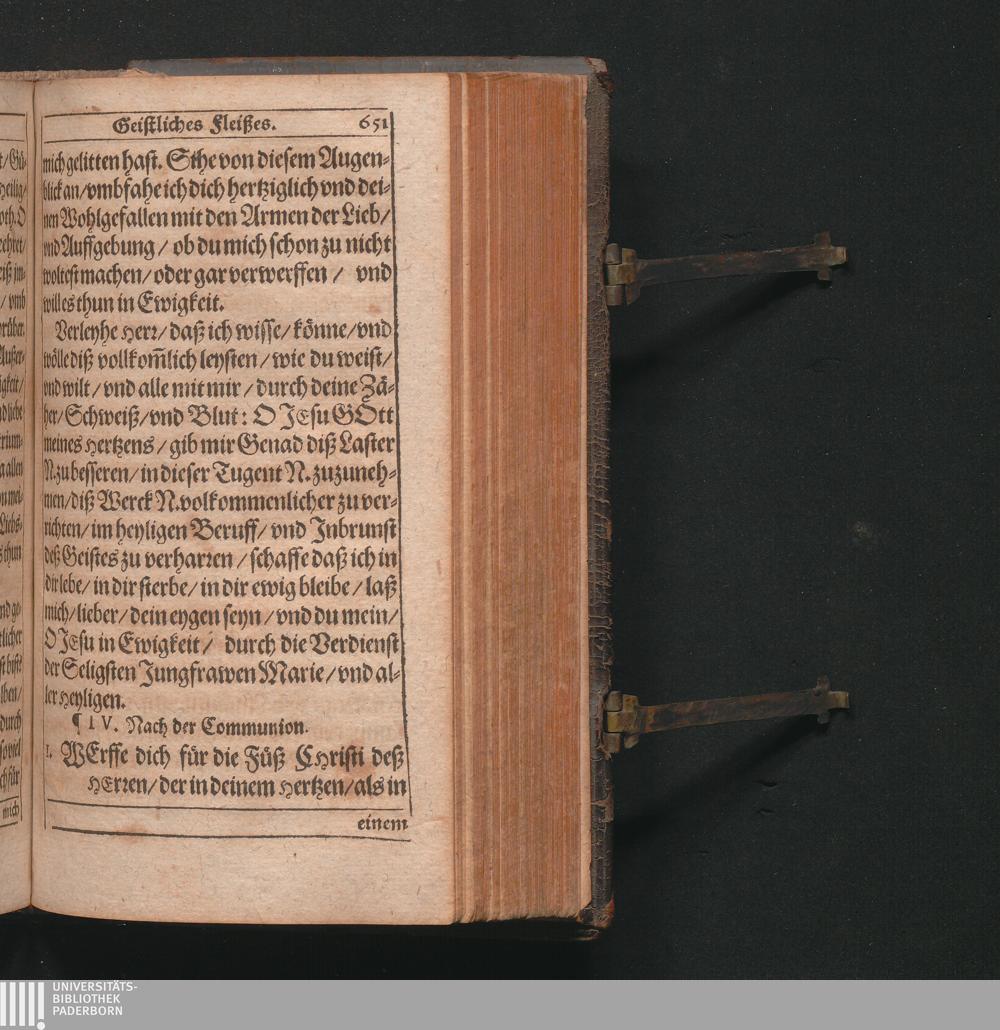 Geistliches Fleißes. 651
mich gelitten hast. Sihe von diesem Augen-
blick an/vmbfahe ich dich hertziglich vnd dei-
nen Wohlgefallen mit den Armen der Lieb/
vnd Auffgebung/ ob du mich schon zu nicht
woltest machen/ oder gar verwerffen/ vnd
will es thun in Ewigkeit.
Verleyhe Herr/ daß ich wisse/ könne/vnd
wölle diß vollkom̃lich leysten/ wie du weist/
vnd wilt/ vnd alle mit mir/ durch deine Zä-
her/ Schweiß/vnd Blut: O JEsu GOtt
meines Hertzens/ gib mir Genad diß Laster
N. zu besseren/ in dieser Tugent N. zuzuneh-
men/diß Werck N. volkommenlicher zu ver-
richten/ im heyligen Beruff/ vnd Inbrunst
deß Geistes zu verharren/ schaffe daß ich in
dir lebe/ in dir sterbe/ in dir ewig bleibe/ laß
mich/ lieber/ dein eygen seyn/ vnd du mein/
O JEsu in Ewigkeit/ durch die Verdienst
der Seligsten Jungfrawen Marie/ vnd al-
ler Heyligen.
¶ IV. Nach der Communion.
1. WErffe dich für die Füß CHristi deß
HErren/ der in deinem Hertzen/als in
einem
mich
UNIVERSITÄTS-
BIBLIOTHEK
PADERBORN